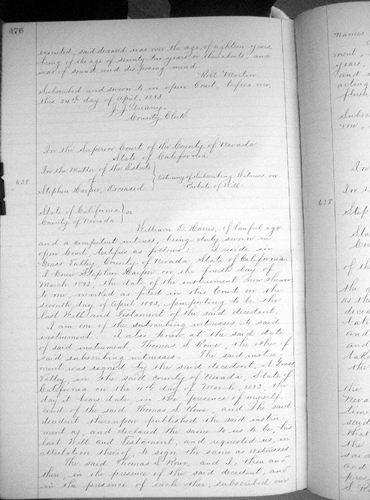 476
executed, said deceased was over the age of eighteen years,
being of the age of seventy two years or thereabouts, and
was of sound and disposing mind.
Robt. Morton
Subscribed and sworn to in open Court, before me,
this 24th day of April, 1893.
County Clerk
In the Superior Court of the County of Nevada
State of California
In the Matter of the Estate
of
Stephen Harper, Deceased
Testimony of Subscribing Witness on
Probate of Will.
628.
State of California
County of Nevada
ss
William D. Harris, of lawful age
and a competent witness, being duly sworn in
open Court, testifies as follows: I reside in
Grass Valley, County of Nevada, State of California.
I knew Stephen Harper on the fourth day of
March 1893, the date of the instrument now shown
to me, marked as filed in this Court on the
day of April 1893, purporting to be the
last Will and Testament of the said decedent.
I am one of the subscribing witnesses to said
instrument. I also knew at the said date
of said instrument, Thomas S. Rowe, the other of
said subscribing witnesses. The said instru-
ment was signed by the said decedent, at Grass
Valley, in the said county of Nevada, State of
California on the 4th day of March, 1893, the
day it bears date, in the presence of myself,
and of the said Thomas S. Rowe, and the said
decedent thereupon published the said instru-
ment as, and declared the same to us to be, his
last Will and Testament, and requested us, in
attestation thereof, to sign the same as witnesses
The said Thomas S. Rowe, and I, then and
there, in the presence of the said decedent, and
in the presence of each other, subscribed our